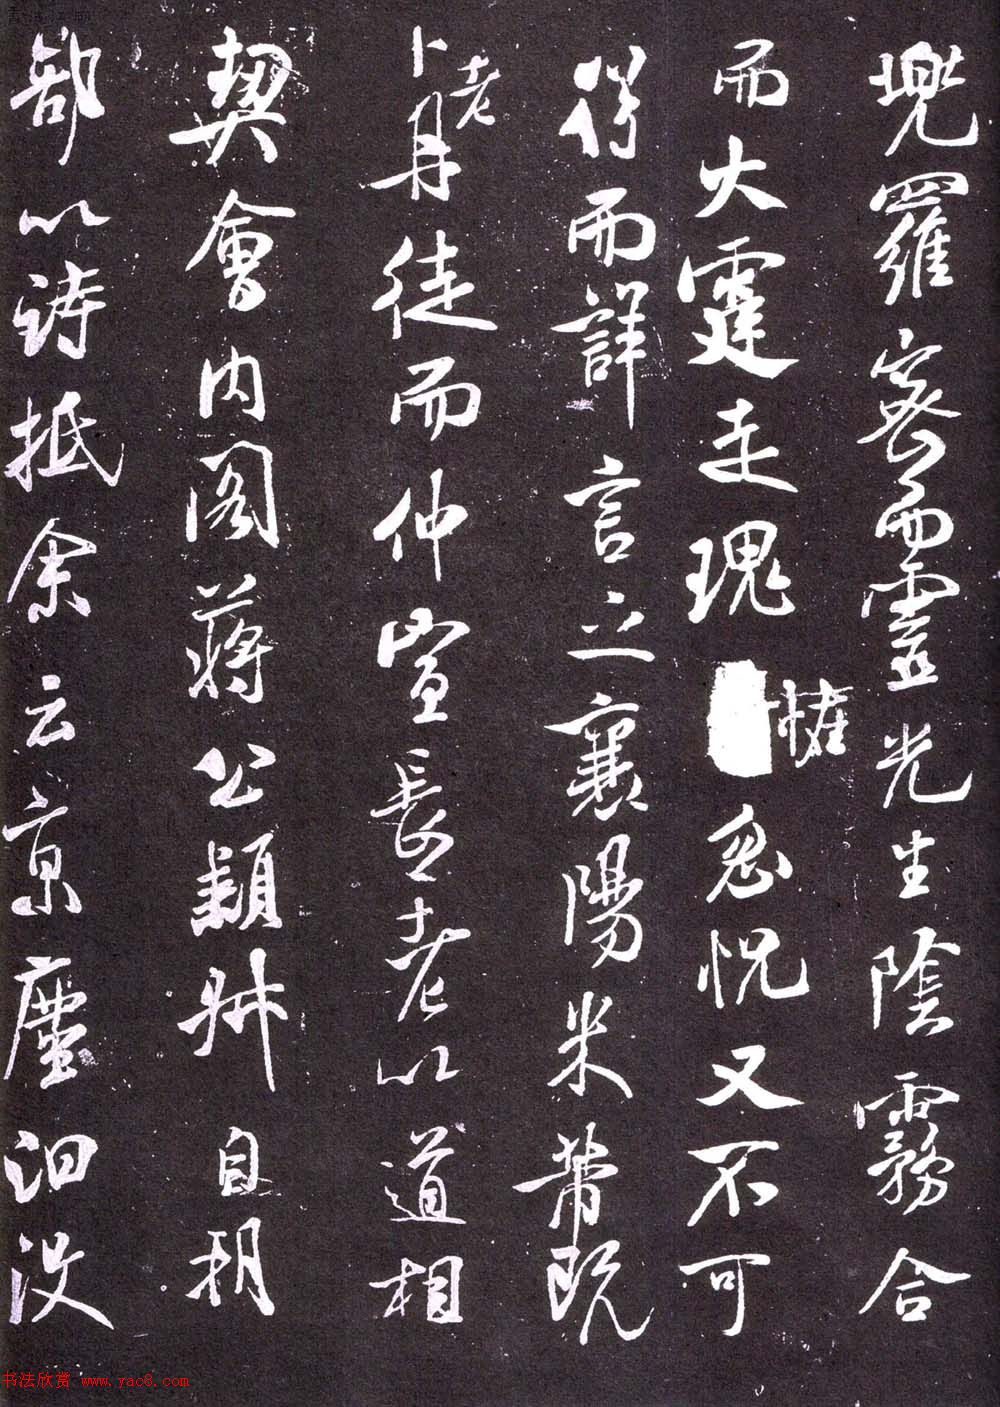 兜羅密而靈光生陰霧合
而大霆走瑰忽恍又不可
得而詳言之襄陽米芾既
卜老丹徒而仲宣長老以道相
契會內閣蔣公穎叔自朔
部以詩抵余云京塵汩沒
书法欣赏 www.yac8.com